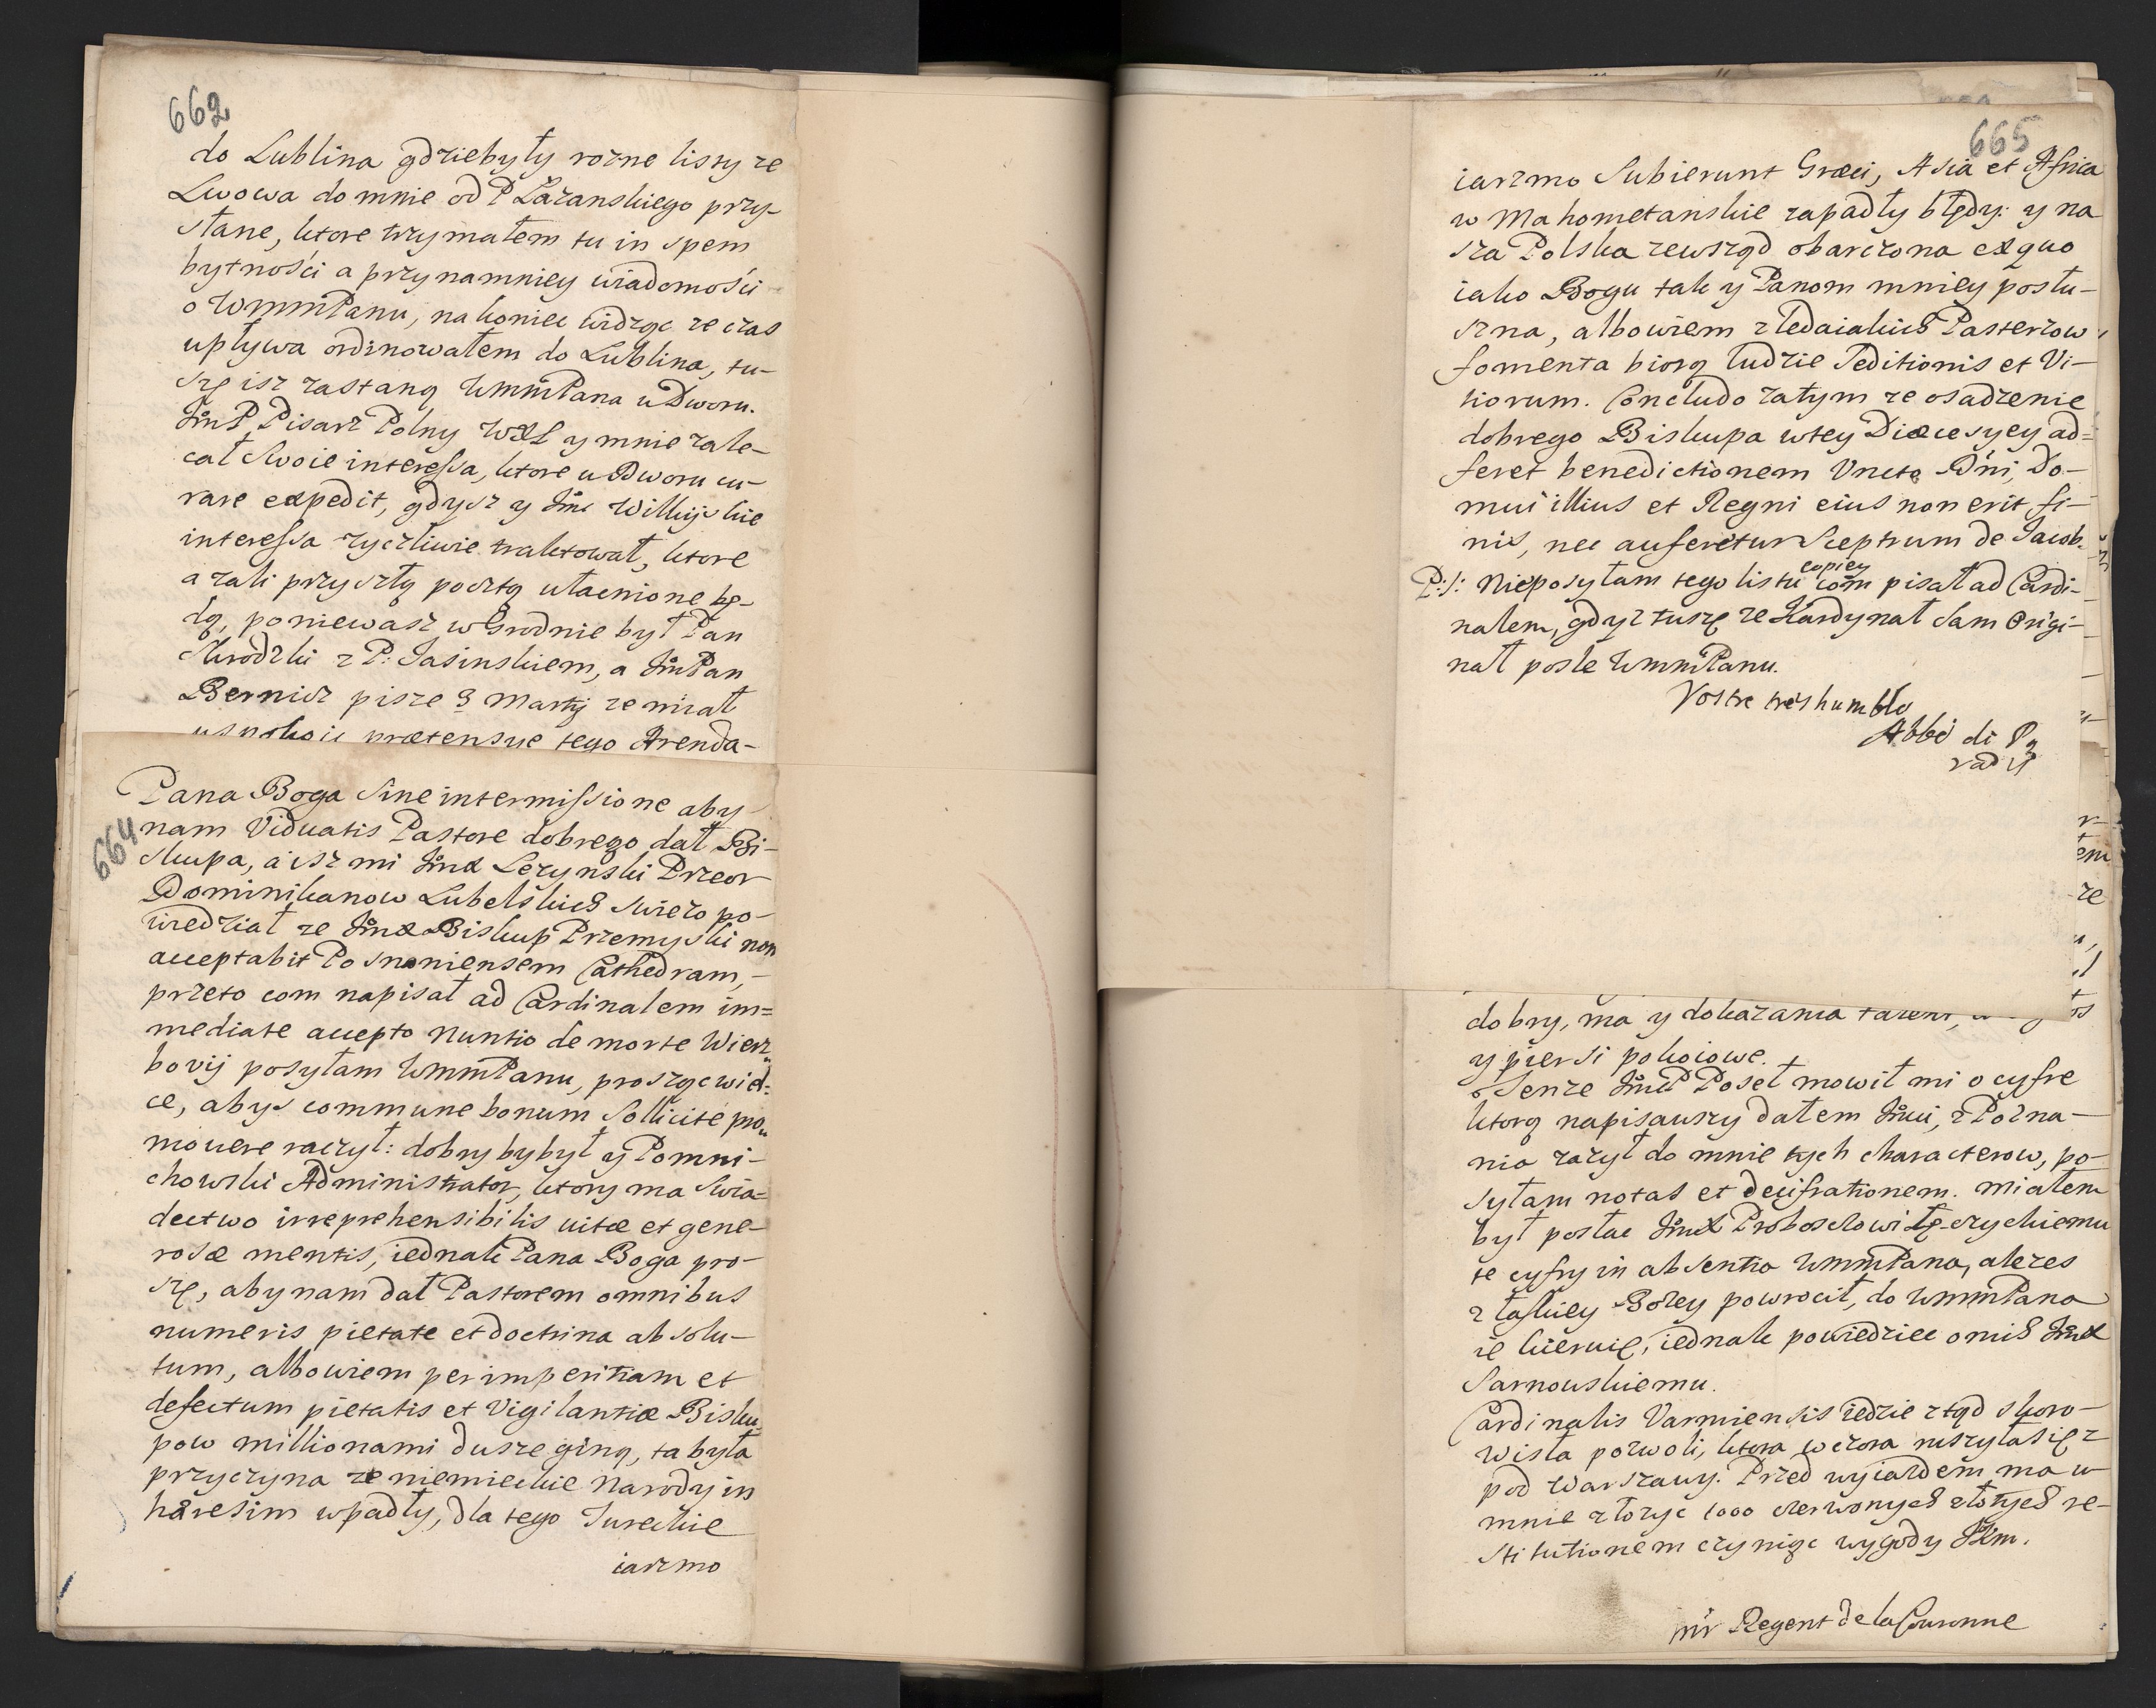 662
do Lublina gdzie były rozne listy ze
Lwowa do mnie od P Łazanskiego przy-
słane, ktore trzymałem tu in spem
bytności a przynamniey wiadomości
o WmmPanu, nakoniec widząc ze czas
upływa ordinowałem do Lublina, tu-
szę isz zastaną WmmPana u Dworu.
JmP Pisarz Polny WXL y mnie zale-
cał Swoie interessa, ktore u Dworu cu-
rare expedit, gdysz y Jmc Wilkiyskie
interessa zyczliwie traktował, ktore
azali przyszłą pocztą ułacnione bę-
dą, poniewasz w Grodnie był Pan
z P: Jasinskiem, a JmPan
Bernicz pisze 3 Martij ze miał
uspokoic prætensye tego Arenda-
664
Pana Boga Sine intermissione aby
nam Viduatis Pastore dobrego dał Bi-
skupa, a isz mi JmX Lezynski Przeor
Dominikanow Lubelskich Swiezo po-
wiedział ze JmX Biskup Przemyski non
acceptabit Posnaniensem Cathedram,-
przeto com napisał ad Cardinalem im=
mediate accepto Nuntio de morte Wierz
bovij posyłam WmmPanu, proszęc wiel-
ce, abys commune bonum Sollicite pro
movere raczył: dobry by był y Pomni-
chowski Administrator, ktory ma Swia=
dectwo irreprehensibilis vitæ et gene-
rosæ mentis, iednak Pana Boga pro-
szę, aby nam dał Pastorem omnibus
numeris pietate et doctrina absolu-
tum, albowiem per imperitiam et
defectum pietatis et Vigilantiæ Bisku-
pow millionami dusze giną, ta była
przyczyna ze niemieckie Narody in
håresim wpadły, dla tego Tureckie
iarzmo
665
iarzmo Subierunt Græci, Asia et Africa
w Mahometanskie zapadły błędy: y na
sza Polska zewsząd obarczona ex quo
iako Bogu tak y Panom mniey posłu-
szna, albowiem z ledaiakich Pasterzow
fomenta biorą ludzie Seditionis et Vi-
tiorum. Concludo zatym ze osadzenie
dobrego Biskupa w tey Diæcesyey ad=
feret benedictionem Vncto Dńi, Do-
mui illius et Regni eius non erit fi-
nis, nec auferetur Sceptrum de Jacob.
P:S: Nieposyłam tego listu copiey com pisał ad Cardi-
nalem, gdyz tuszę ze Kardynał Sam Origi-
nał posle WmmPanu.
Vostre tres humble
Abbé di Pa
radis
dobry, ma y dokazania talent,
y piersi pokoiowe.
Senze JmP Poseł mowił mi o cyfre
ktorą napisawszy dałem Jmci, z Pozna-
nia zazył do mnie tych characterow, po-
syłam notas et decifrationem. miałem
był posłac JmX Proboszczowi Łęczyckiemu
te cyfry in absentia WmmPana, ale zes
z łaskiey Bozey powrocił, do WmmPana
ie kieruię, iednak powiedziec o nich JmX
Sarnowskiemu.
Cardinalis Varmiensis iedzie ztąd skoro-
Wisła pozwoli, ktora wczora ruszyła się z
pod Warszawy. Przed wyiazdem ma u
mnie złozyc 1000 czerwonych złotych re-
stitutionem czyniąc wygody
Mr Regent de la Couronne